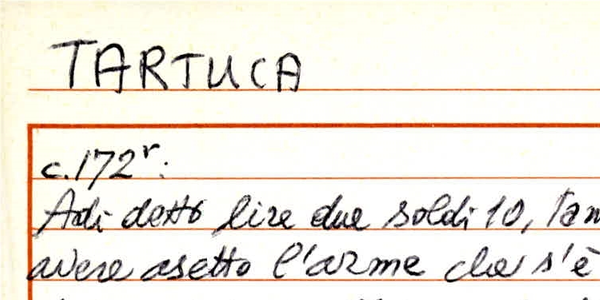 TARTUCA
c. 172r:
Adi detto lire due soldi 10,
avere asetto l'arme che s'è